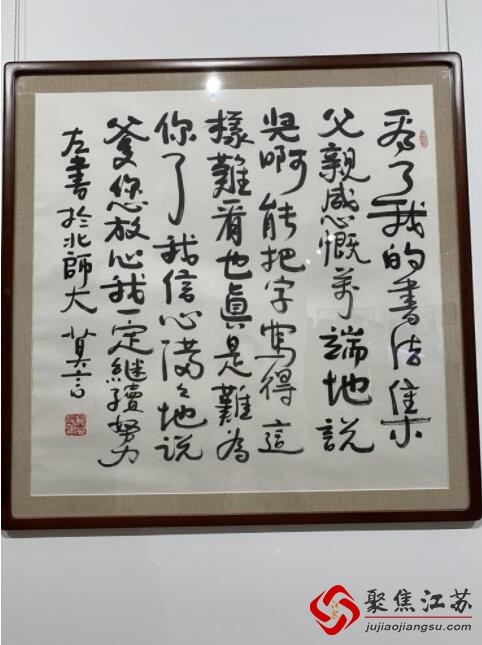 看了我的書法集
父親感慨萬端地說
兒啊能把字寫得這
樣難看也真是難為
你了我信心滿々地說
爹您放心我一定繼續努力
左書於北師大 莫言
聚焦江苏
jujiaojiangsu.com